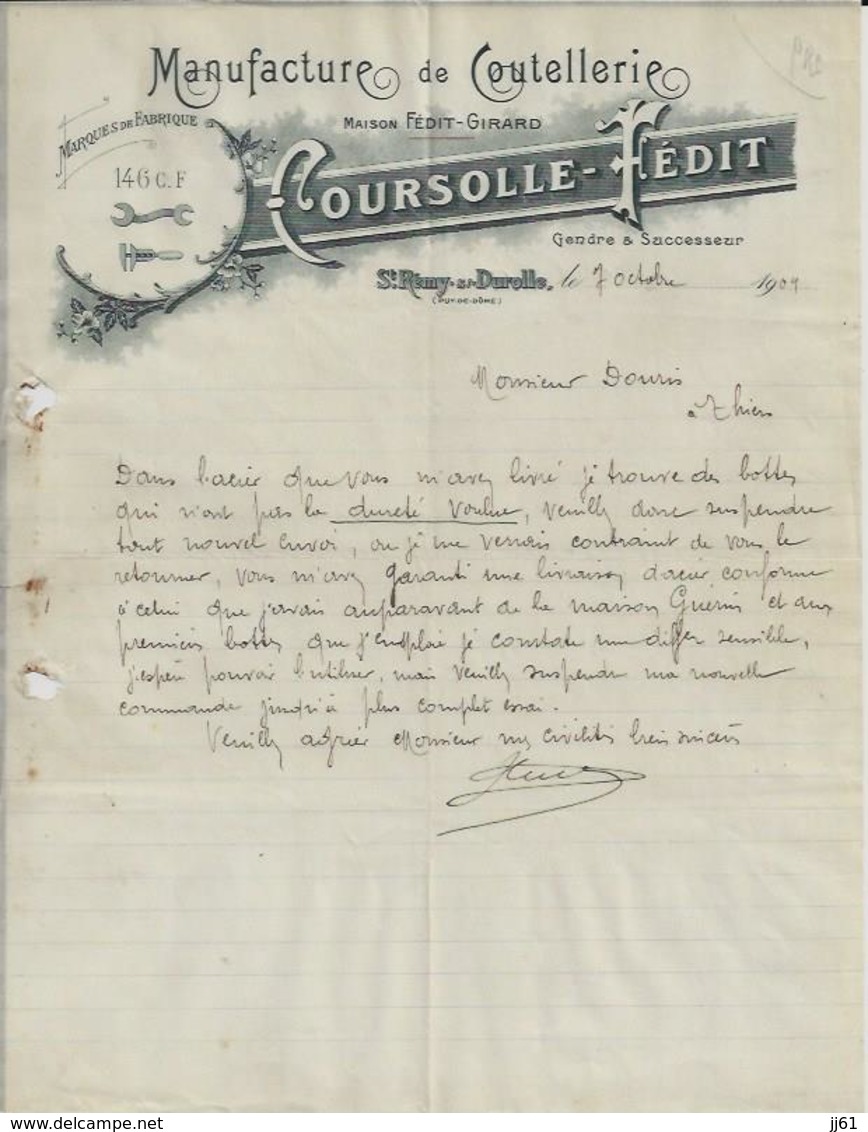 Manufacture de Coutellerie
MARQUES DE FABRIQUE
MAISON FÉDIT-GIRARD
146 C. F
COURSOLLE-FÉDIT
Gendre & Successeur
St. Rémy-s/-Durolle, le 7 octobre 1909
(PUY-DE-DÔME)
Monsieur Douris
à Thiers
Dans l'acier que vous m'avez livré je trouve des bottes
qui n'ont pas la dureté voulue, veuillez donc suspendre
tout nouvel envoi, ou je me verrais contraint de vous le
retourner, vous m'avez garanti une livraison d'acier conforme
à celui que j'avais auparavant de la maison Guérin et aux
premières bottes que j'emploie je constate une differ sensible,
j'espère pouvoir l'utiliser, mais veuillez suspendre ma nouvelle
commande jusqu'à plus complet essai.
Veuillez agréer Monsieur mes civilités bien sincères
delcampe.net
jj61